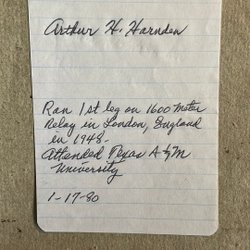 Arthur H. Harnden
Ran 1st leg on 1600 meter
Relay in London, England
in 1948.
Attended Texas A & M
University
1-17-80